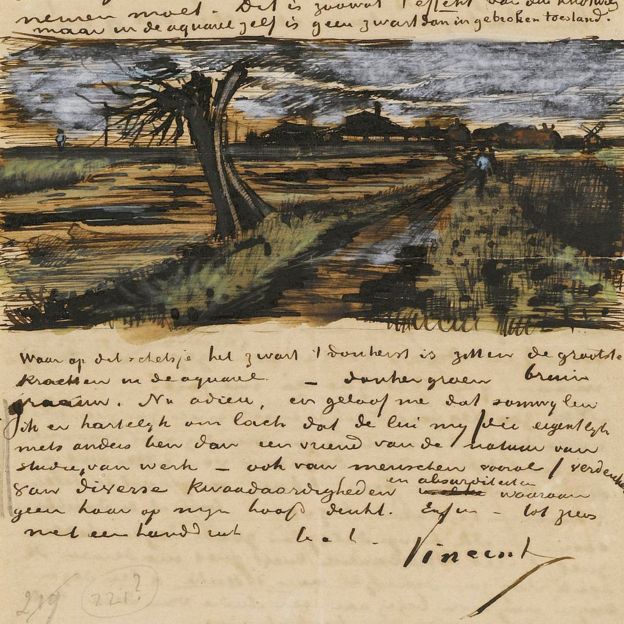 nemen moet. Dit is zoowat 't effect van den knotwilg
maar in de aquarel zelf is geen zwart dan in gebroken toestand.
Waar op dit schetsje het zwart 't donkerst is zitten de grootste
krachten in de aquarel – donkergroen bruin
graauw. Nu adieu, en geloof me dat somwijlen
ik er hartelyk om lach dat de lui my (die eigentlyk
niets anders ben dan een vriend van de natuur van
studie, van werk – ook van menschen vooral) verdenken
van diverse kwaadaardigheden en absurditeiten waaraan
geen haar op myn hoofd denkt. Enfin – tot ziens
met een handdruk
Vincent
219 221?